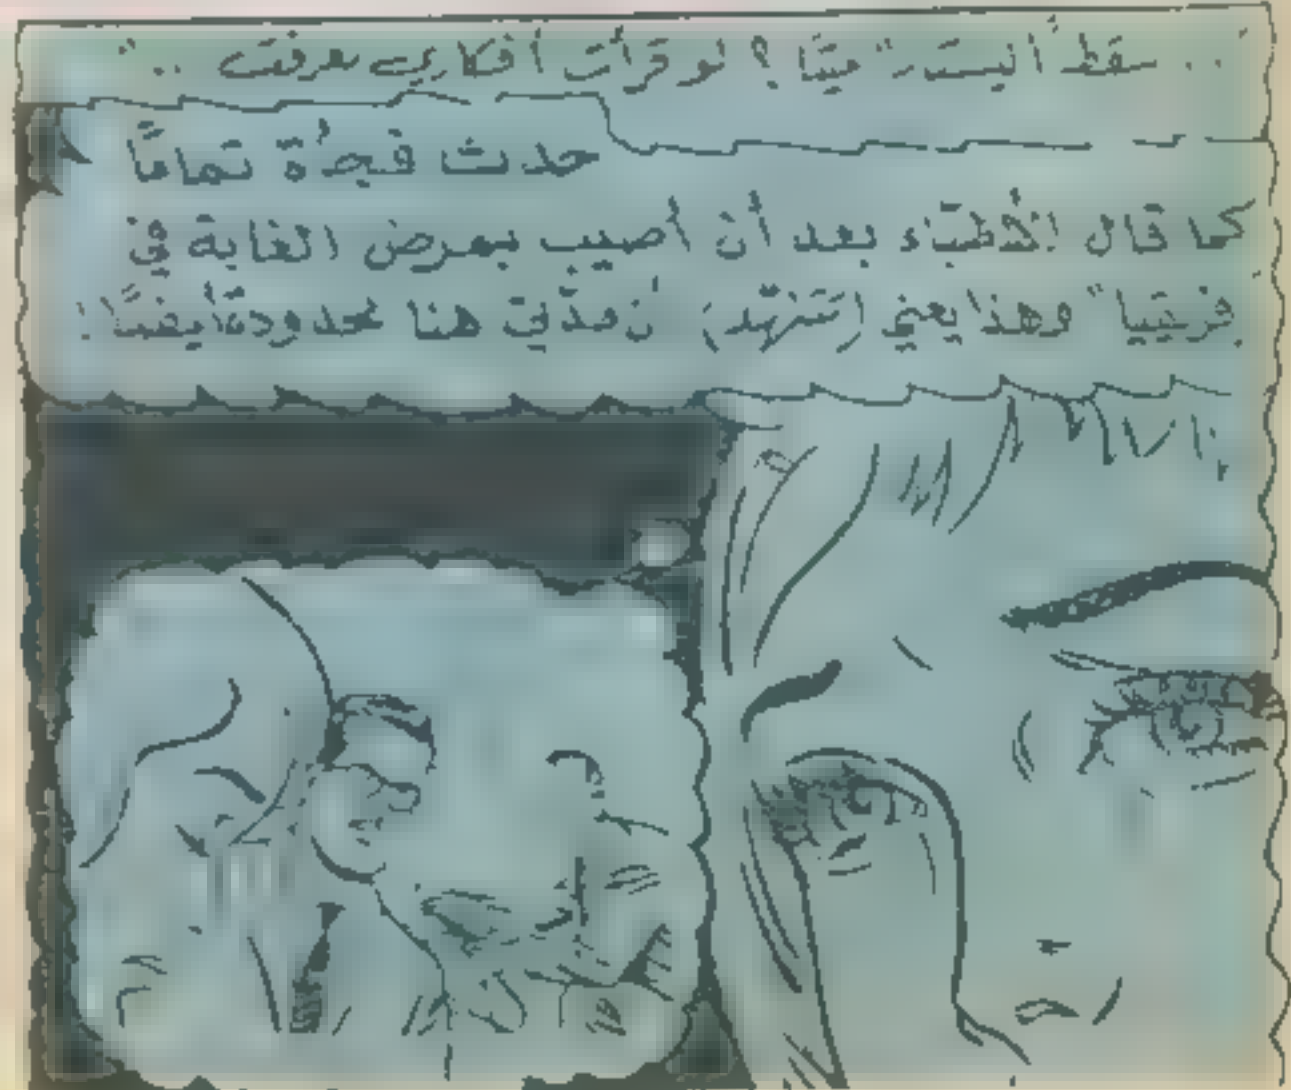 .. سقط أليستر "ميتًا؟ لو قرأت أفكاري لعرفت .."
حدث فجأة تمامًا
كما قال الأطباء بعد أن أصيب بمرض الغابة في
فريقيا" وهذا يعني (تتنهّد) ن مدّتي هنا محدودة أيضًا!